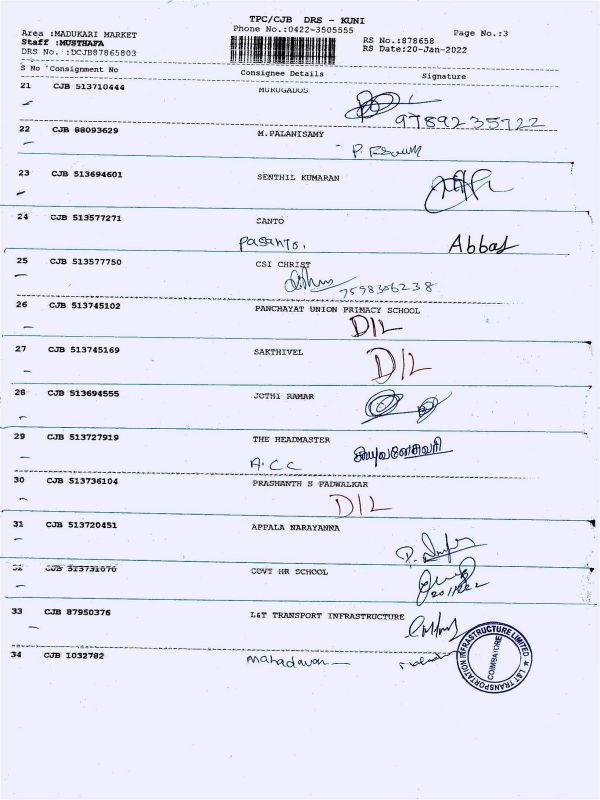 TPC/CJB DRS - KUNI
Area :MADUKARI MARKET
Phone No.:0422-3505555
Page No.:3
Staff :MUSTHAFA
RS No.:878658
DRS No. :DCJB87865803
RS Date:20-Jan-2022
S No Consignment No Consignee Details Signature
21 CJB 513710444 MURUGADOS
9789235722
22 CJB 88093629 M.PALANISAMY
23 CJB 513694601 SENTHIL KUMARAN
24 CJB 513577271 SANTO
Pasanto. Abbas
25 CJB 513577750 CSI CHRIST
7598306238
26 CJB 513745102 PANCHAYAT UNION PRIMACY SCHOOL
D/L
27 CJB 513745169 SAKTHIVEL
D/L
28 CJB 513694555 JOTHI RAMAR
29 CJB 513727919 THE HEADMASTER
A.C.C
30 CJB 513736104 PRASHANTH S PADWALKAR
D/L
31 CJB 513720451 APPALA NARAYANNA
32 CJB 513731070 GOVT HR SCHOOL
33 CJB 87950376 L&T TRANSPORT INFRASTRUCTURE
34 CJB 1032782
L&T TRANSPORTATION INFRASTRUCTURE LIMITED
COIMBATORE